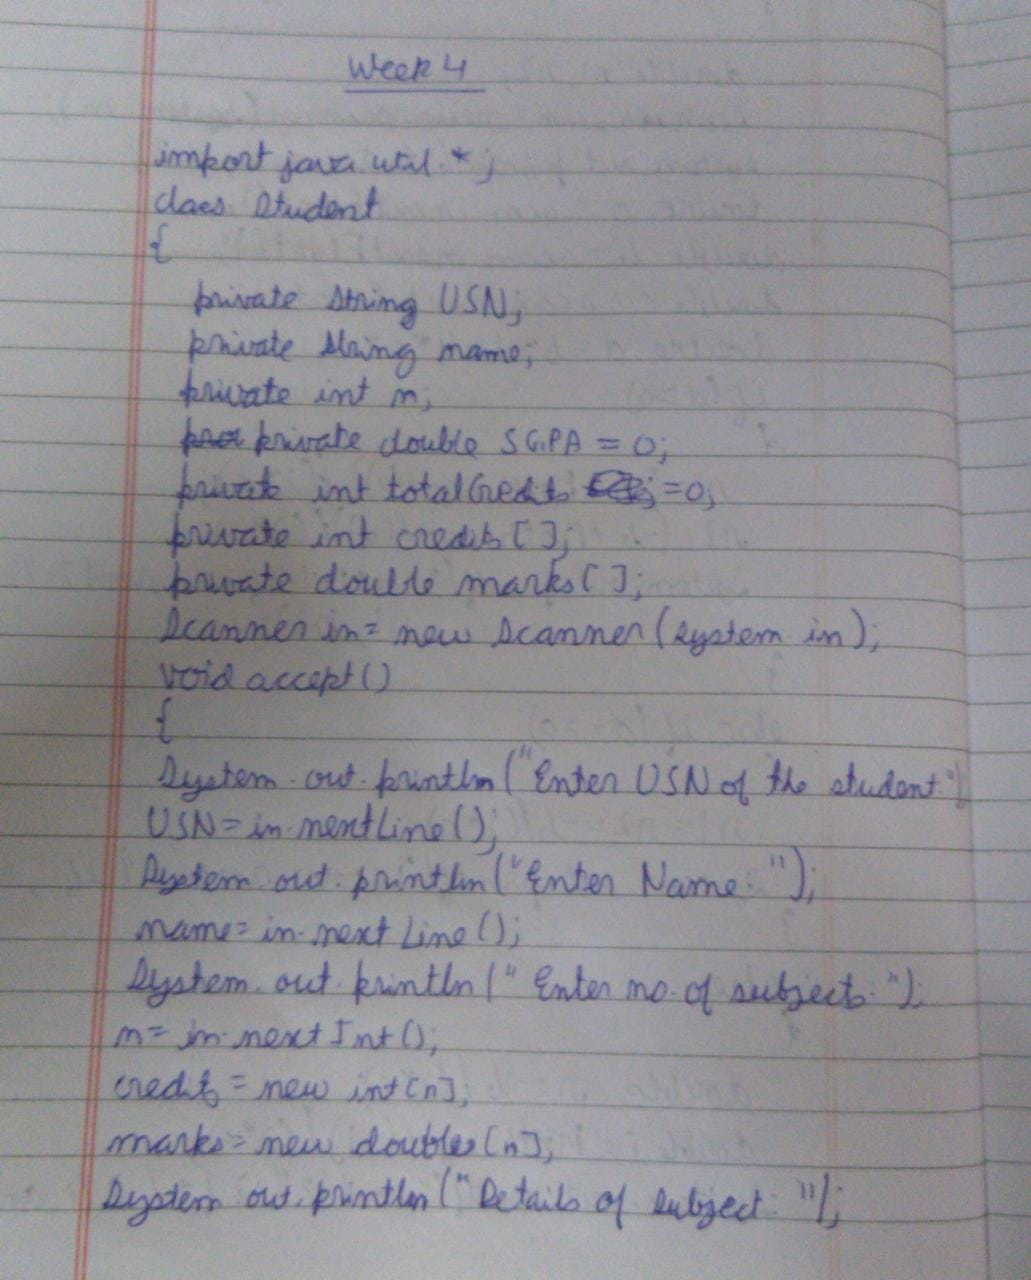 Week 4
import java.util.*;
class Student
{
private String USN;
private String name;
private int n;
private double SGPA = 0;
private int totalCredits =0;
private int credits[];
private double marks[];
Scanner in= new Scanner(System.in);
void accept()
{
System.out.println("Enter USN of the student.")
USN=in.nextLine();
System.out.println("Enter Name. ");
name= in.next Line();
System.out.println(" Enter no. of subjects. ");
n= in.next Int();
credits = new int[n];
marks= new doubles[n];
System out.println("Details of Subject. ");